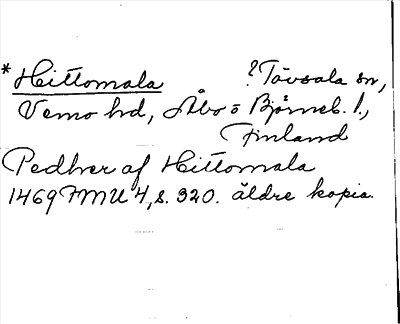 * Hittomala ? Tövsala sn,
Vemo hd, Åbo o Björneb. l.,
Finland
Pedher af Hittomala
1469 FMU 4, s. 320. äldre kopia.